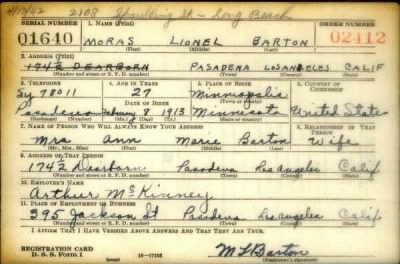 4/13/42 2108 Spaulding St - Long Beach
SERIAL NUMBER 1. NAME (Print) ORDER NUMBER
01640 MORAS LIONEL BARTON 02412
(First) (Middle) (Last)
2. ADDRESS (Print)
174½ DEARBORN PASADENA LOS ANGELES CALIF
(Number and street or R. F. D. number) (Town) (County) (State)
3. TELEPHONE 4. AGE IN YEARS 5. PLACE OF BIRTH 6. COUNTRY OF CITIZENSHIP
Sy 78011 27 Minneapolis
DATE OF BIRTH (Town or county)
Pasadena February 8 1913 Minnesota United States
(Exchange) (Number) (Mo.) (Day) (Yr.) (State or country)
7. NAME OF PERSON WHO WILL ALWAYS KNOW YOUR ADDRESS 8. RELATIONSHIP OF THAT PERSON
Mrs Ann Marie Barton Wife
(Mr., Mrs., Miss) (First) (Middle) (Last)
9. ADDRESS OF THAT PERSON
174½ Dearborn Pasadena Los Angeles Calif
(Number and street or R. F. D. number) (Town) (County) (State)
10. EMPLOYER'S NAME
Arthur McKinney
11. PLACE OF EMPLOYMENT OR BUSINESS
395 Jackson St Pasadena Los Angeles Calif
(Number and street or R. F. D. number) (Town) (County) (State)
I AFFIRM THAT I HAVE VERIFIED ABOVE ANSWERS AND THAT THEY ARE TRUE.
REGISTRATION CARD
D. S. S. Form 1 (over) 16—17105 M L Barton
(Registrant's signature)